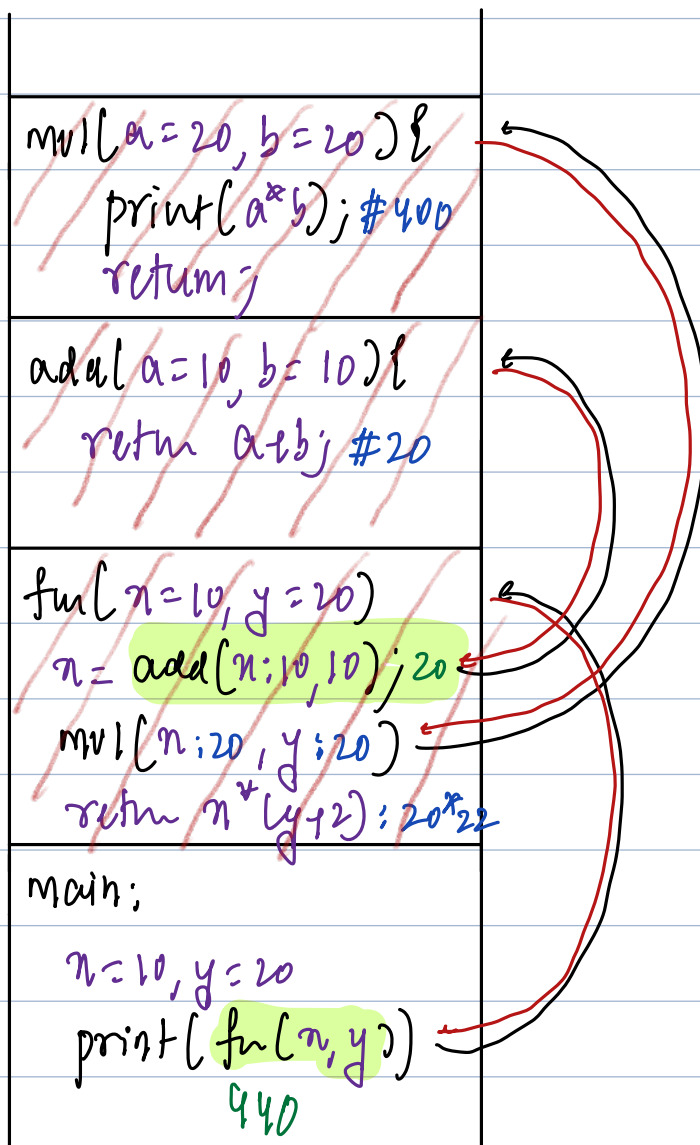 mul(a=20, b=20){
print(a*b); #400
return;
add(a=10, b=10){
retur a+b; #20
fun(x=10, y=20)
x= add(x:10,10); 20
mul(x:20, y:20)
retur x*(y+2): 20*22
main:
x=10, y=20
print(fun(x,y))
440